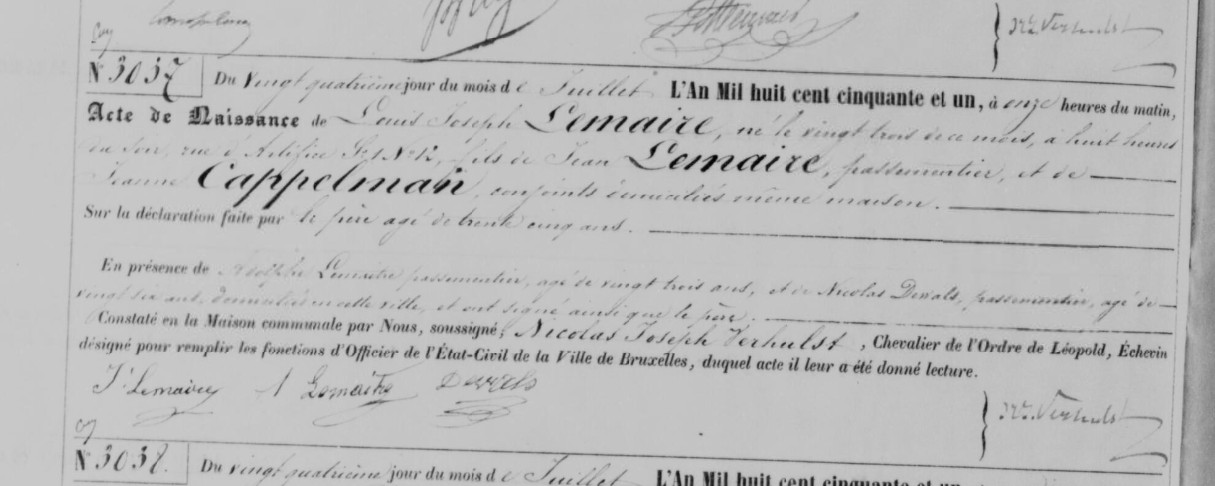 Nˢ Verhulst
N° 3037 Du vingt quatrième jour du mois de Juillet L'An Mil huit cent cinquante et un, à onze heures du matin,
Acte de Naissance de Louis Joseph Lemaire, né le vingt trois de ce mois, à huit heures
du soir, rue d'Artifice Sᵒⁿ 1 Nº 12, fils de Jean Lemaire, passementier, et de
Jeanne Cappelman, conjoints domiciliés même maison.
Sur la déclaration faite par le père agé de trente cinq ans.
En présence de Adolphe Lemaitre passementier, agé de vingt trois ans, et de Nicolas Dewals, passementier, agé de
vingt six ans, domiciliés en cette ville, et ont signé ainsi que le père.
Constaté en la Maison communale par Nous, soussigné, Nicolas Joseph Verhulst, Chevalier de l'Ordre de Léopold, Échevin
désigné pour remplir les fonctions d'Officier de l'État-Civil de la Ville de Bruxelles, duquel acte il leur a été donné lecture.
J Lemaire A Lemaitre Dewals
Nˢ Verhulst
N° 3038. Du vingt quatrième jour du mois de Juillet L'An Mil huit cent cinquante et un,